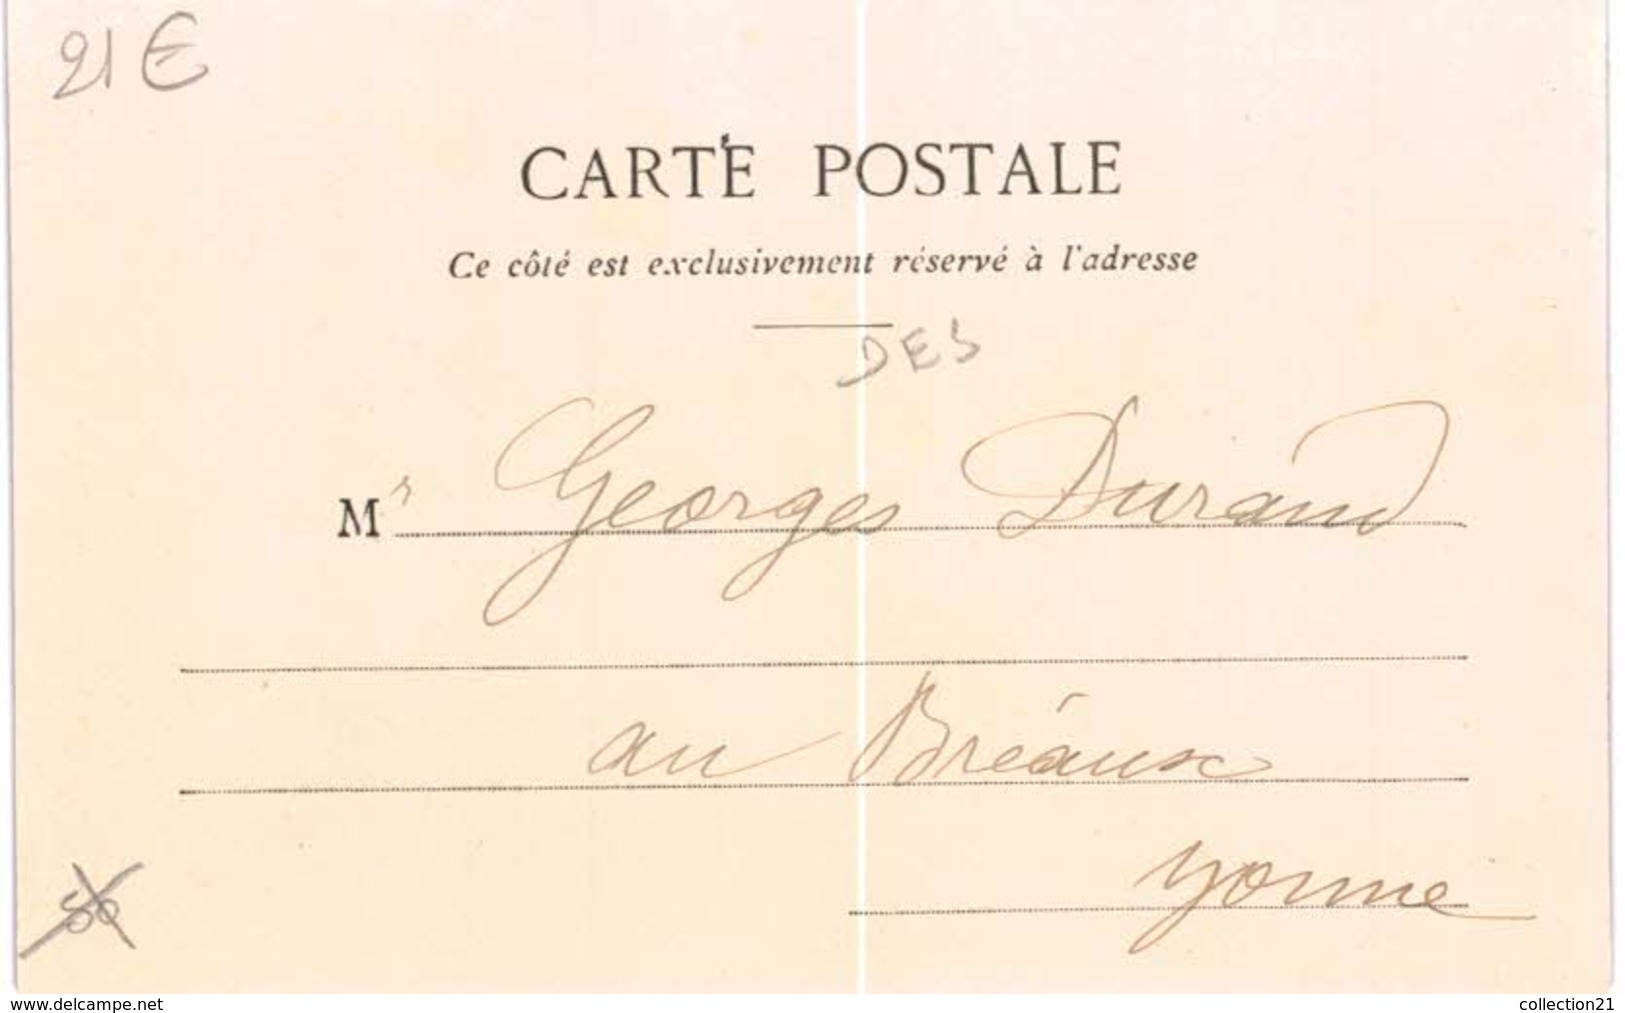 21 €
CARTE POSTALE
Ce côté est exclusivement réservé à l'adresse
DES
Mr Georges Durand
au Bréaux
Yonne
50
www.delcampe.net
collection21